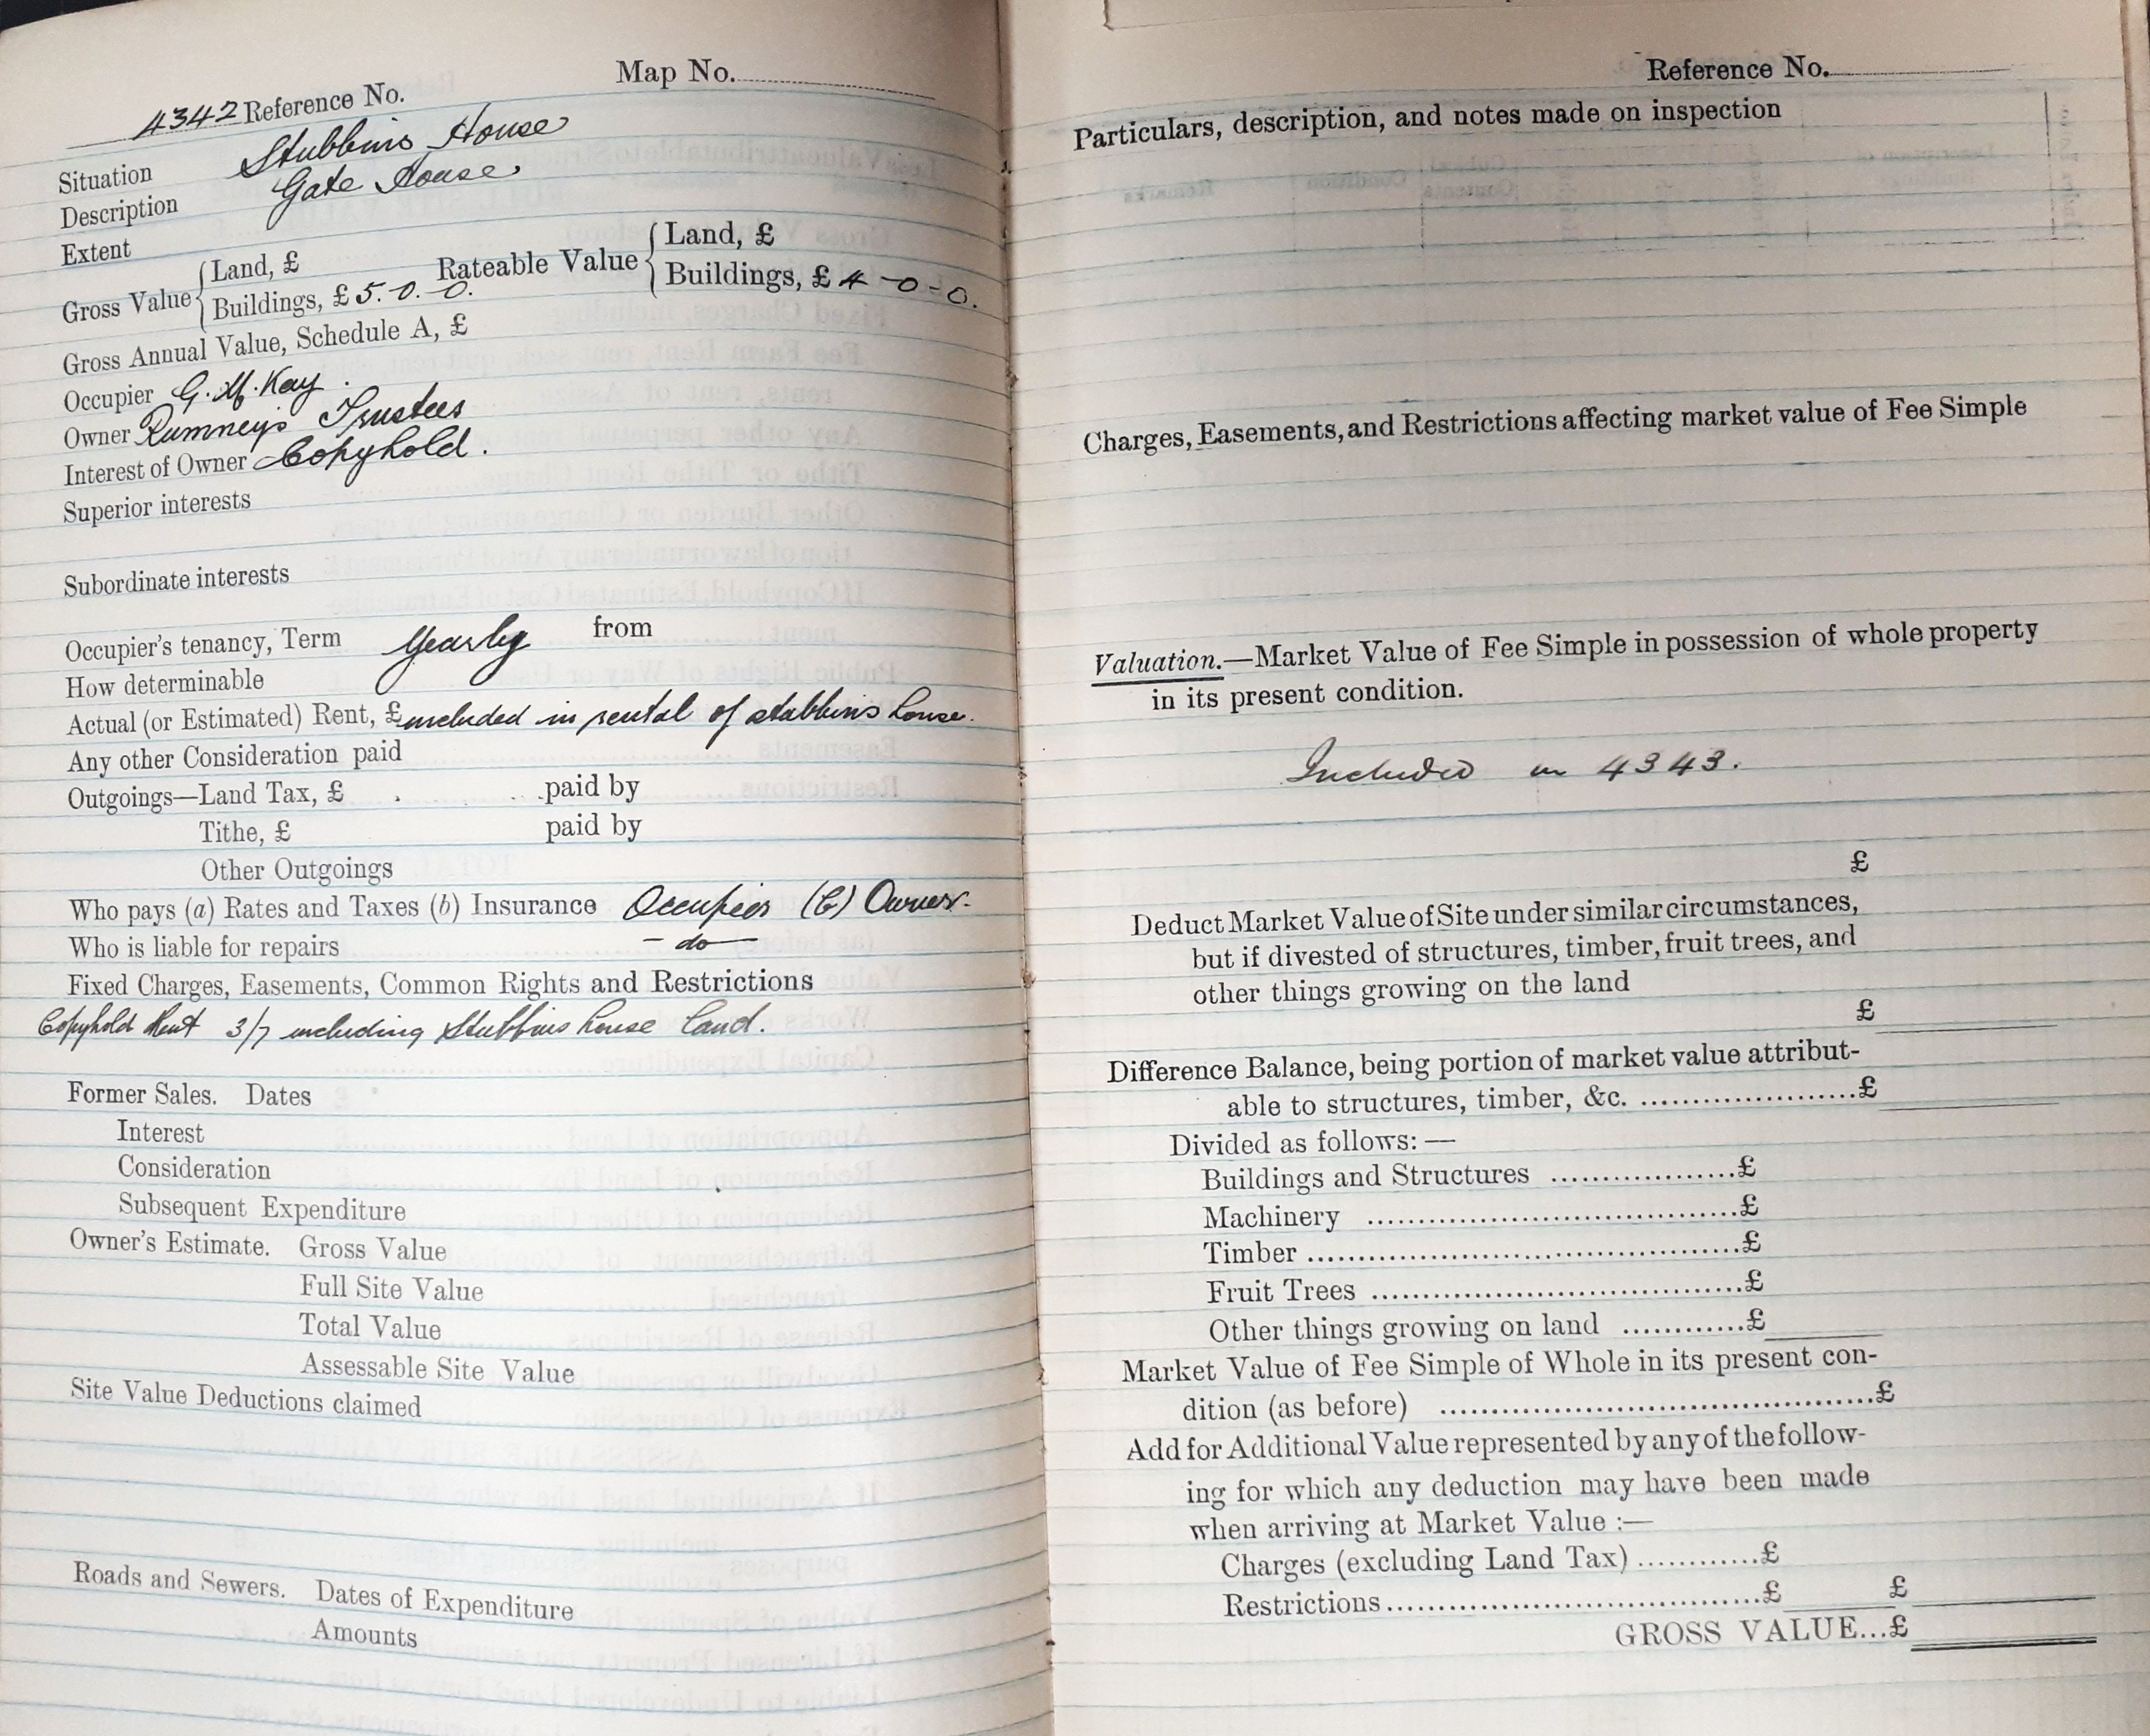 Map No.
4342 Reference No.
Situation Stubbins House
Description Gate House.
Extent
Gross Value { Land, £ Rateable Value { Land, £
Buildings, £ 5.-0.-0. Buildings, £ 4-0-0.
Gross Annual Value, Schedule A, £
Occupier G. M. Kay.
Owner Rumney's Trustees
Interest of Owner Copyhold.
Superior interests
Subordinate interests
Occupier's tenancy, Term Yearly from
How determinable
Actual (or Estimated) Rent, £ included in rental of stubbins house.
Any other Consideration paid
Outgoings—Land Tax, £ paid by
Tithe, £ paid by
Other Outgoings
Who pays (a) Rates and Taxes (b) Insurance Occupier (b) Owner.
Who is liable for repairs -do-
Fixed Charges, Easements, Common Rights and Restrictions
Copyhold Rent 3/7 including Stubbins house land.
Former Sales. Dates
Interest
Consideration
Subsequent Expenditure
Owner's Estimate. Gross Value
Full Site Value
Total Value
Assessable Site Value
Site Value Deductions claimed
Roads and Sewers. Dates of Expenditure
Amounts
Reference No.
Particulars, description, and notes made on inspection
Charges, Easements, and Restrictions affecting market value of Fee Simple
Valuation.—Market Value of Fee Simple in possession of whole property
in its present condition.
Included in 4343.
£
Deduct Market Value of Site under similar circumstances,
but if divested of structures, timber, fruit trees, and
other things growing on the land
£
Difference Balance, being portion of market value attribut-
able to structures, timber, &c. ......................£
Divided as follows:—
Buildings and Structures ...................£
Machinery ......................................£
Timber ............................................£
Fruit Trees ......................................£
Other things growing on land ............£
Market Value of Fee Simple of Whole in its present con-
dition (as before) .............................................£
Add for Additional Value represented by any of the follow-
ing for which any deduction may have been made
when arriving at Market Value :—
Charges (excluding Land Tax) ............£
Restrictions.......................................£ £
GROSS VALUE...£